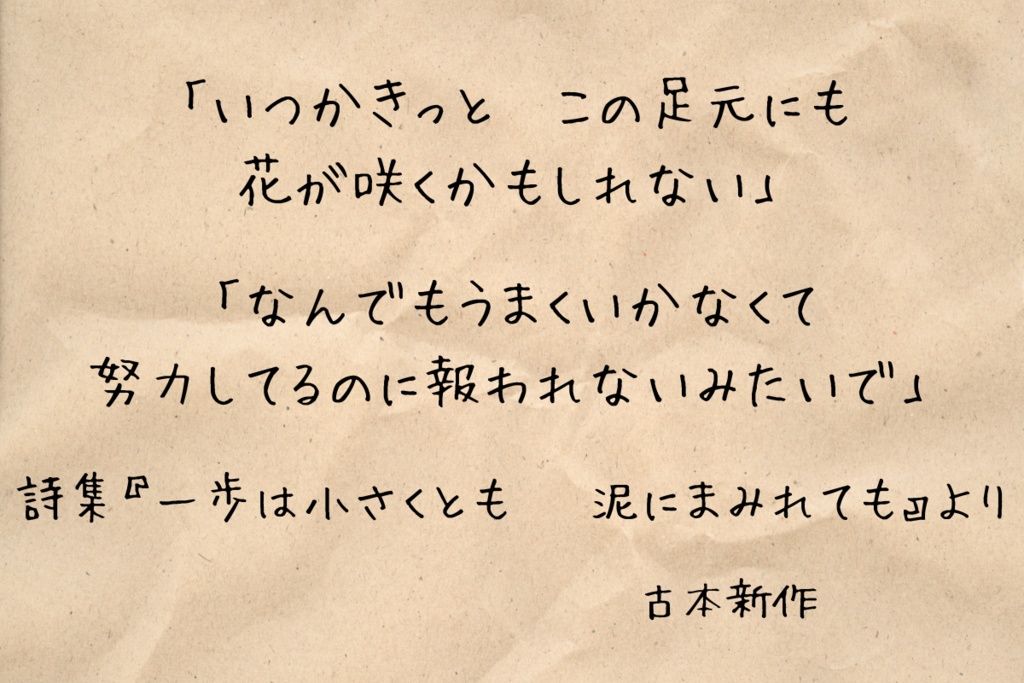 「いつかきっと　この足元にも
花が咲くかもしれない」
「なんでもうまくいかなくて
努力してるのに報われないみたいで」
詩集『一歩は小さくとも　泥にまみれても』より
古本新作